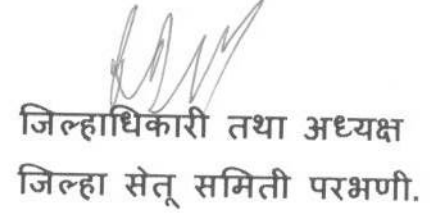 जिल्हाधिकारी तथा अध्यक्ष
जिल्हा सेतू समिती परभणी.